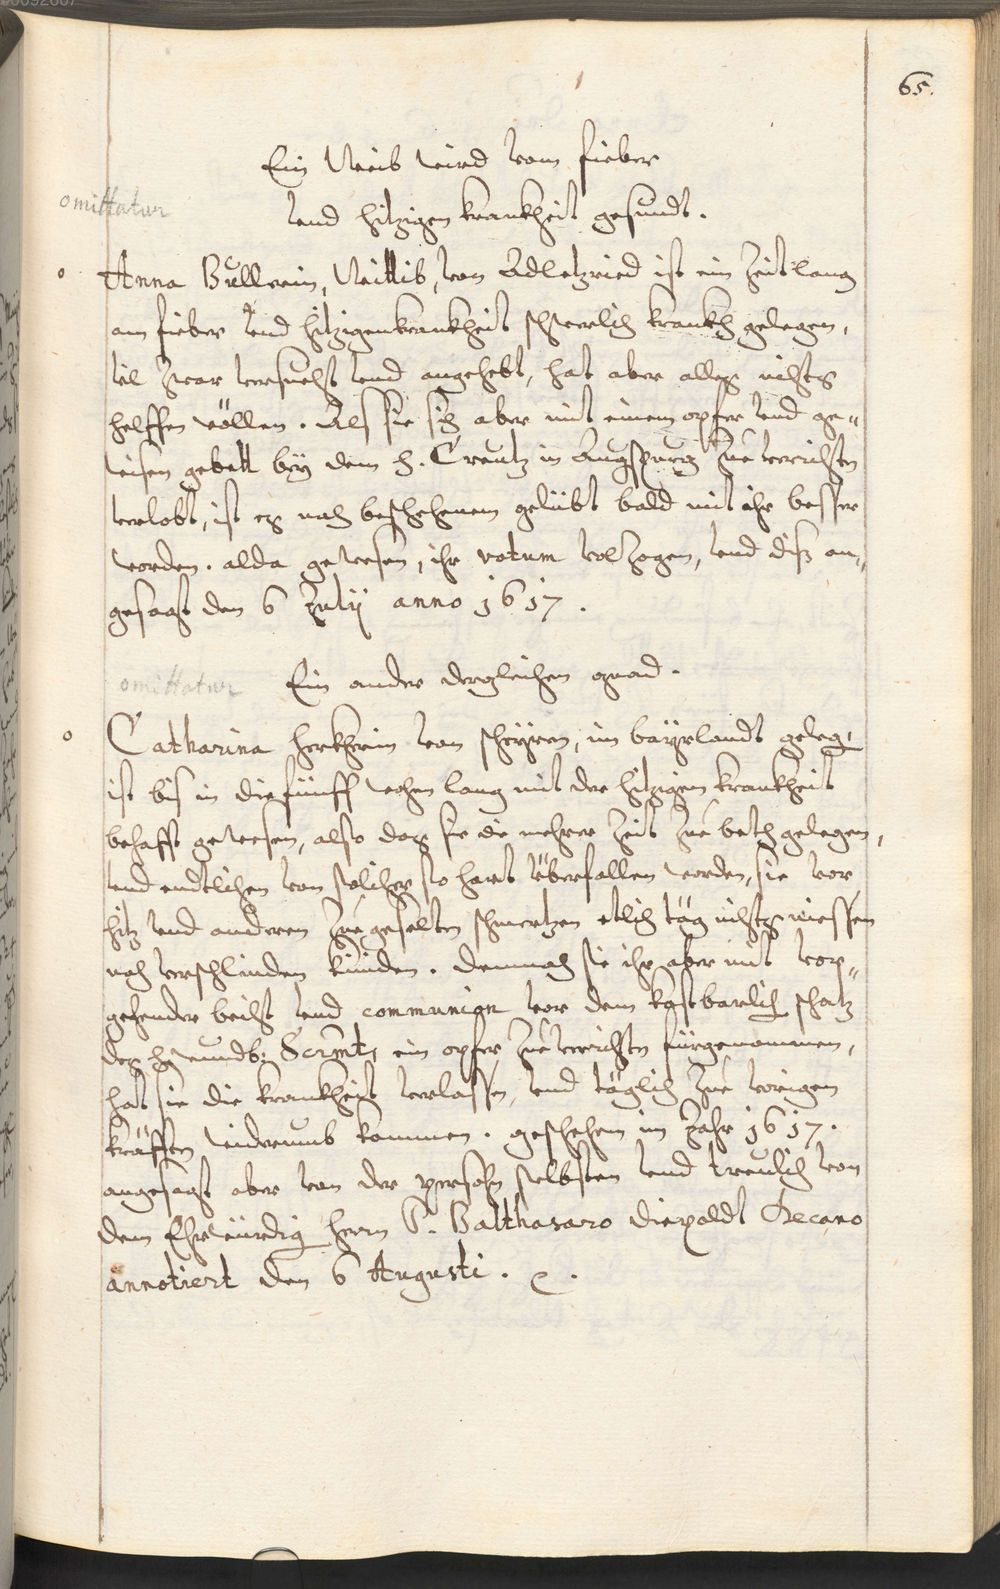 65.
Ein Weib wird vom fieber
omittatur
vnd hitzigen kranckheit gesundt.
o Anna Bullerin, Wittib, von Adletzried ist ein Zeitlang
am fieber vnd hitzigenkranckheit schwerlich kranckh gelegen,
vil zwar versuecht vnd angehebt, hat aber alles nichts
helffen wöllen. Als sie sich aber mit einem opfer vnd ge-
wisen gebett bey dem h. Creutz in Augspurg Zue verrichten
verlobt, ist es nach beschehenem gelübt bald mit ihr besser
worden. alda gewesen, ihr votum volzogen, vnd diß an-
gesagt den 6 Julij anno 1617.
omittatur Ein ander dergleichen gnad.
o Catharina Herkhrin von scheyren, im bayrlandt geleg.
ist bis in die fünff wochen lang mit der hitzigen kranckheit
behafft gewesen, also das sie die mehrer Zeit Zue beth gelegen,
vnd endtlichen von solicher so hart überfallen worden, sie vor
hitz vnd anderen Zuegeselten schmertzen etlich täg nichts niessen
noch verschlinden künden. demnach sie ihr aber mit vor-
gehender beicht vnd communion vor dem kostbarlich schatz
des h. wundb: Scrmts ein opfer Zue verrichten fürgenommen,
hat sie die kranckheit verlassen, vnd täglich Zue vorigen
kräfften widerumb kommen. geschehen im Jahr 1617.
angesagt aber von der persohn selbsten vnd treulich von
dem Ehrwürdig herrn P. Balthasaro diepoldt Decano
annotiert den 6 Augusti.